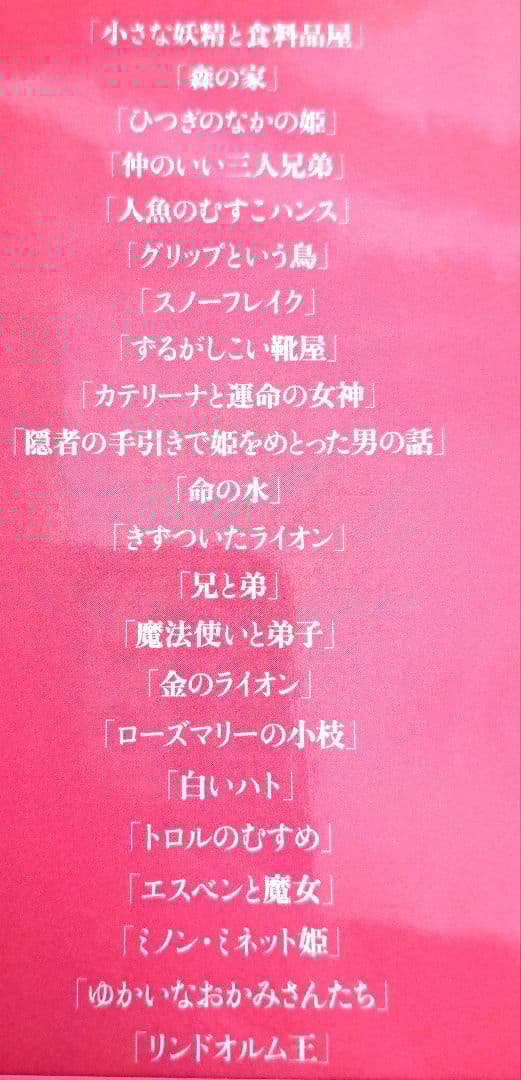 「小さな妖精と食料品屋」
「森の家」
「ひつぎのなかの姫」
「仲のいい三人兄弟」
「人魚のむすこハンス」
「グリップという鳥」
「スノーフレイク」
「ずるがしこい靴屋」
「カテリーナと運命の女神」
「隠者の手引きで姫をめとった男の話」
「命の水」
「きずついたライオン」
「兄と弟」
「魔法使いと弟子」
「金のライオン」
「ローズマリーの小枝」
「白いハト」
「トロルのむすめ」
「エスベンと魔女」
「ミノン・ミネット姫」
「ゆかいなおかみさんたち」
「リンドオルム王」